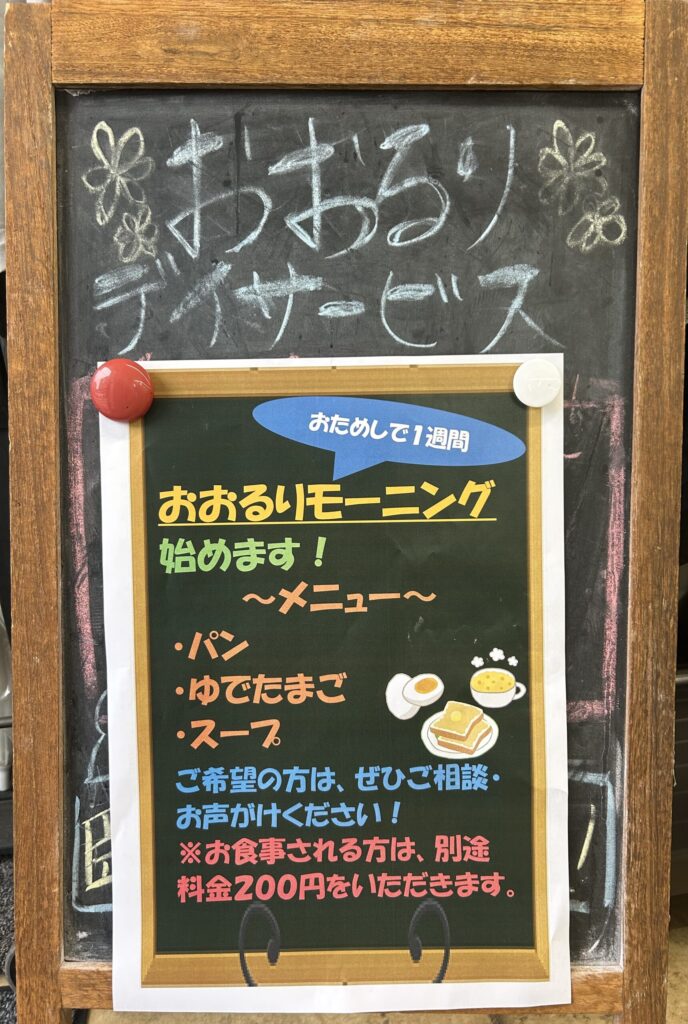 おおるり
デイサービス
おためしで1週間
おおるりモーニング
始めます！
～メニュー～
・パン
・ゆでたまご
・スープ
ご希望の方は、ぜひご相談・
お声がけください！
※お食事される方は、別途
料金200円をいただきます。